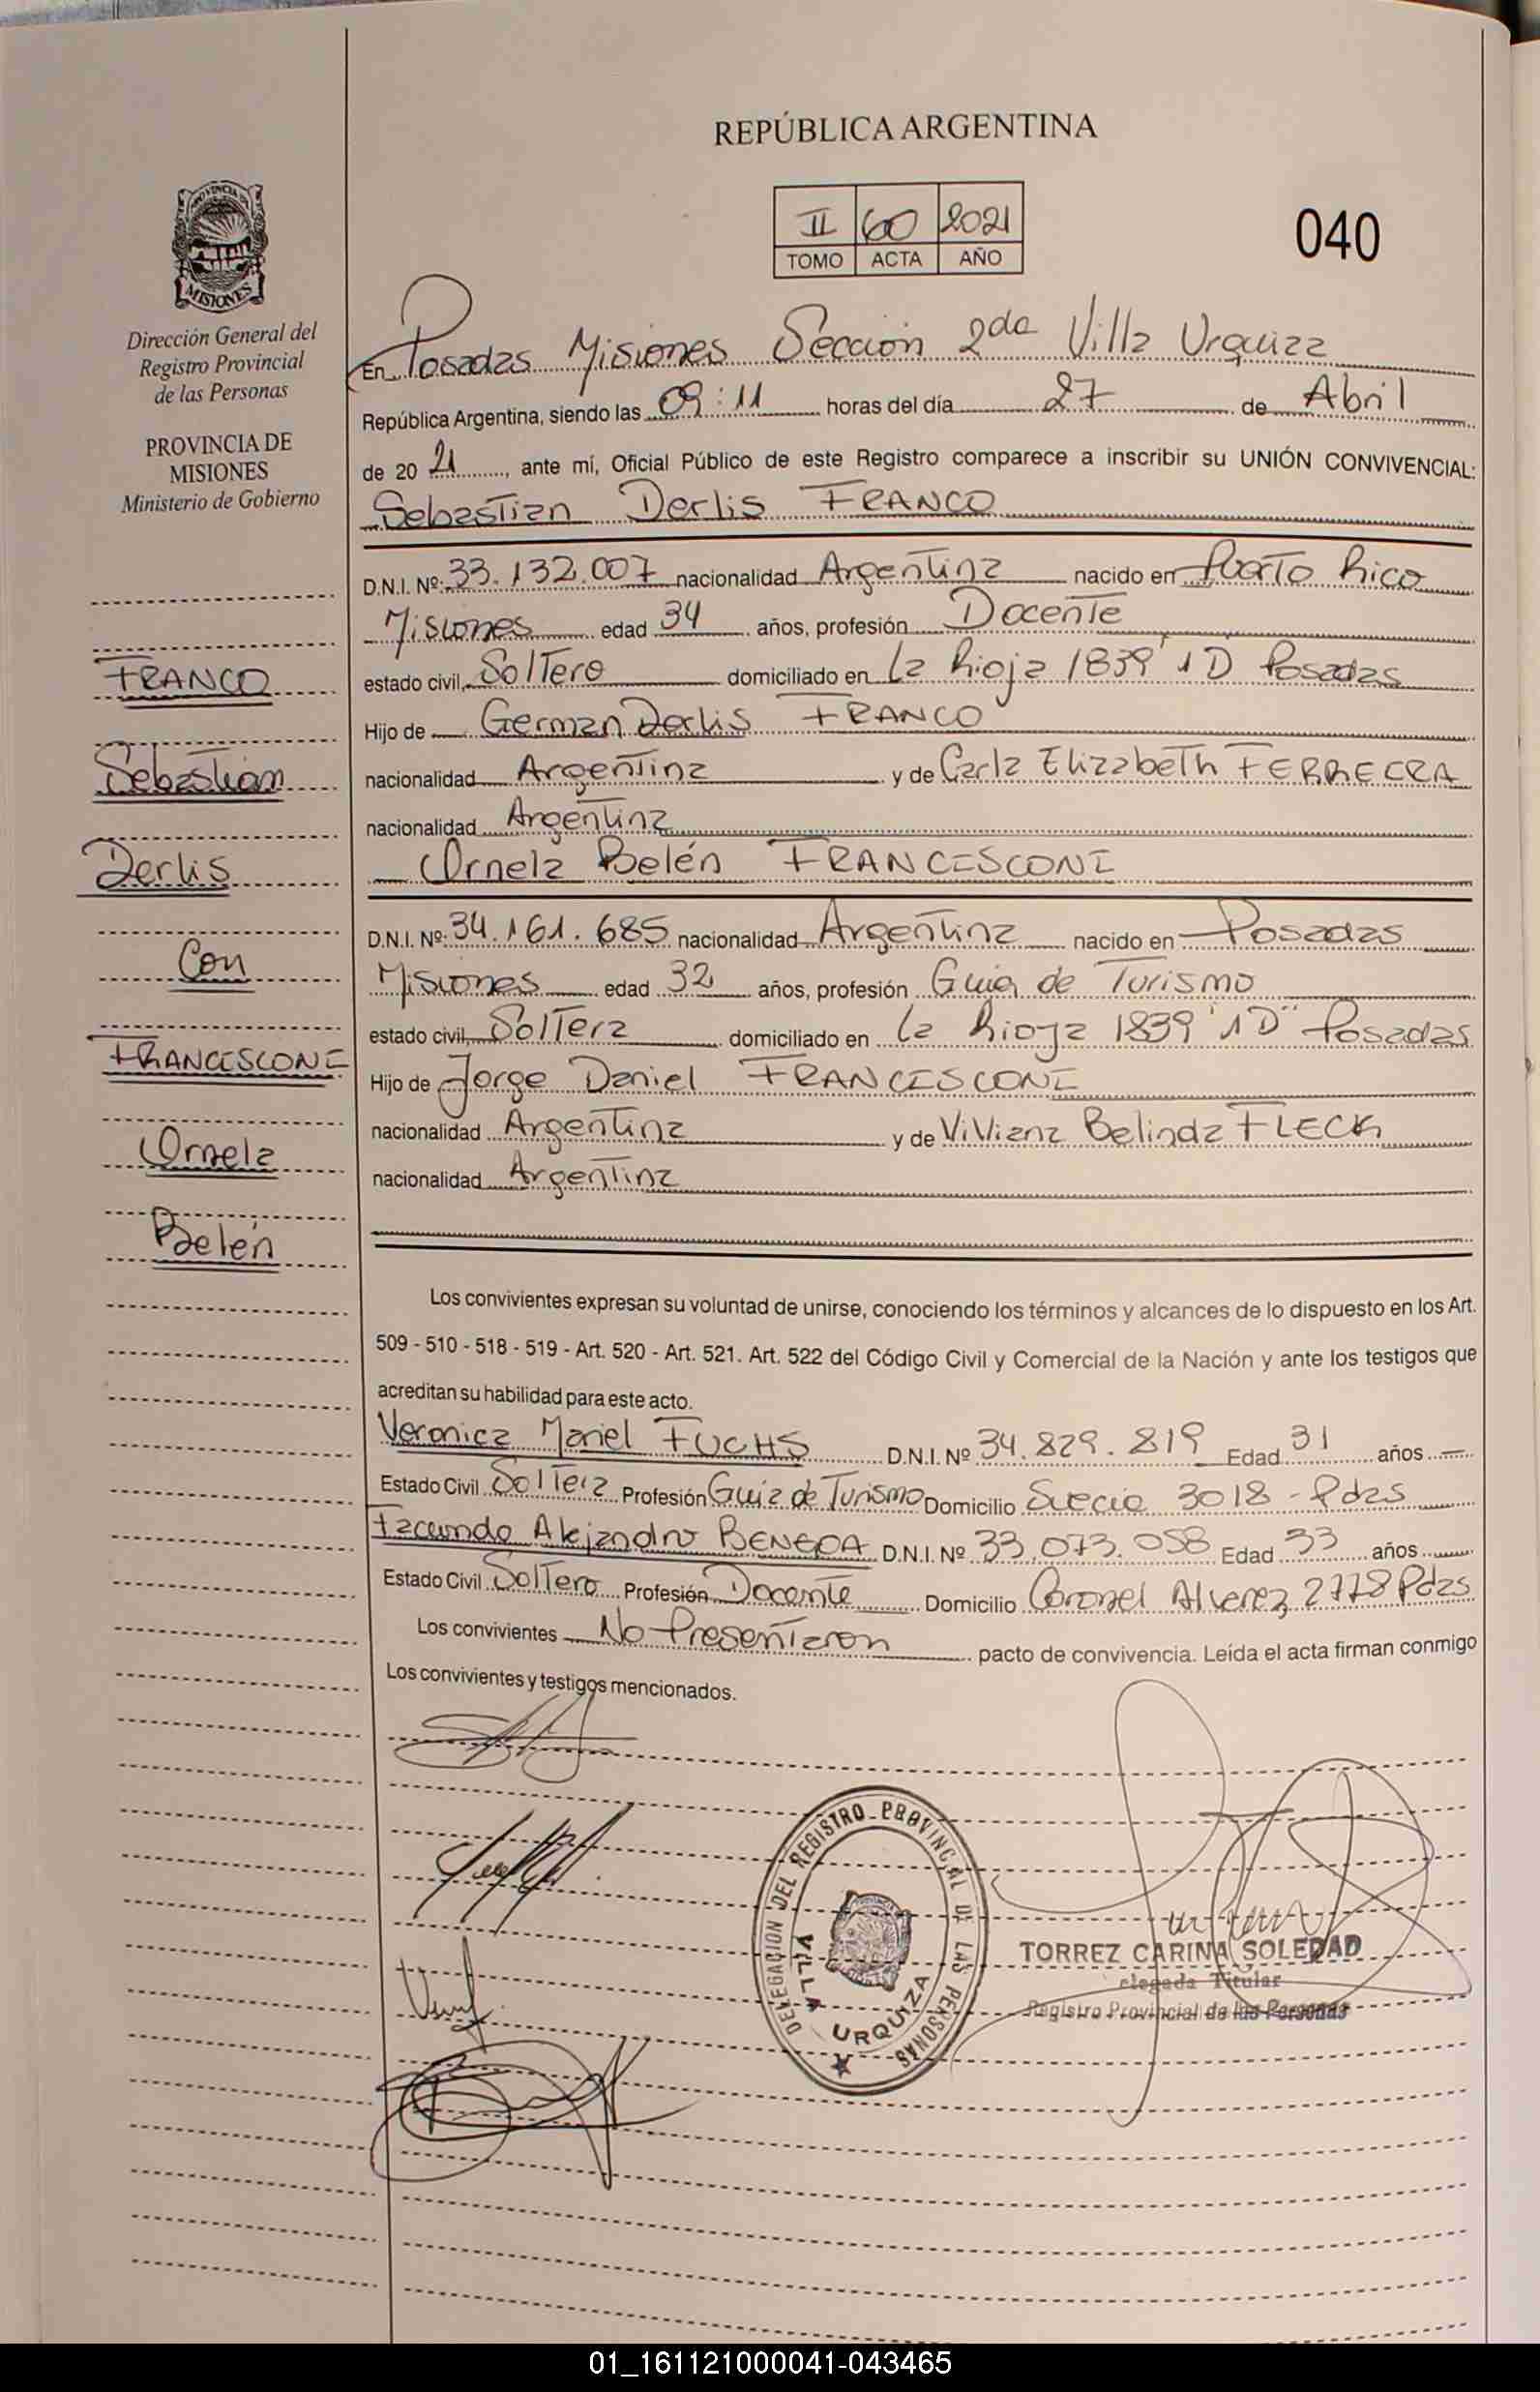 REPÚBLICA ARGENTINA
II 60 2021
TOMO ACTA AÑO
040
PROVINCIA DE
MISIONES
Dirección General del
Registro Provincial
de las Personas
PROVINCIA DE
MISIONES
Ministerio de Gobierno
FRANCO
Sebastian
Derlis
Con
FRANCESCONI
Ornela
Belén
En Posadas Misiones Sección 2da Villa Urquiza
República Argentina, siendo las 09:11 horas del día 27 de Abril
de 20 21, ante mí, Oficial Público de este Registro comparece a inscribir su UNIÓN CONVIVENCIAL:
Sebastian Derlis FRANCO
D.N.I. Nº: 33.132.007 nacionalidad Argentina nacido en Puerto Rico
Misiones edad 34 años, profesión Docente
estado civil, Soltero domiciliado en La Rioja 1839 1D Posadas
Hijo de German Derlis FRANCO
nacionalidad Argentina y de Carla Elizabeth FERREIRA
nacionalidad Argentina
Ornela Belén FRANCESCONI
D.N.I. Nº: 34.161.685 nacionalidad Argentina nacido en Posadas
Misiones edad 32 años, profesión Guia de Turismo
estado civil, Soltera domiciliado en La Rioja 1839 "1D" Posadas
Hijo de Jorge Daniel FRANCESCONI
nacionalidad Argentina y de Viviana Belinda FLECK
nacionalidad Argentina
Los convivientes expresan su voluntad de unirse, conociendo los términos y alcances de lo dispuesto en los Art.
509 - 510 - 518 - 519 - Art. 520 - Art. 521. Art. 522 del Código Civil y Comercial de la Nación y ante los testigos que
acreditan su habilidad para este acto.
Veronica Mariel FUCHS D.N.I. Nº 34.829.819 Edad 31 años
Estado Civil Soltera Profesión Guia de Turismo Domicilio Suecia 3018 - Pdas
Facundo Alejandro D.N.I. Nº 33.073.058 Edad 33 años
Estado Civil Soltero Profesión Docente Domicilio Coronel Alverez 2778 Pdas
Los convivientes No Presentaron pacto de convivencia. Leída el acta firman conmigo
Los convivientes y testigos mencionados.
DELEGACION DEL REGISTRO PROVINCIAL DE LAS PERSONAS
VILLA URQUIZA
TORREZ CARINA SOLEDAD
elegada Titular
Registro Provincial de las Personas
01_161121000041-043465